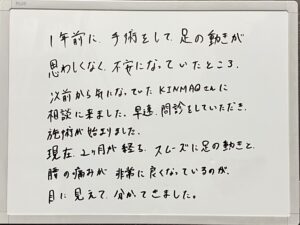 1年前に、手術をして、足の動きが
思わしくなく、不安になっていたところ、
以前から気になっていた KINMAQさんに
相談に来ました。早速、問診をしていただき、
施術が始まりました。
現在、2ヶ月が経ち、スムーズに足の動きと、
膝の痛みが、非常に良くなっているのが、
目に見えて、分かってきました。